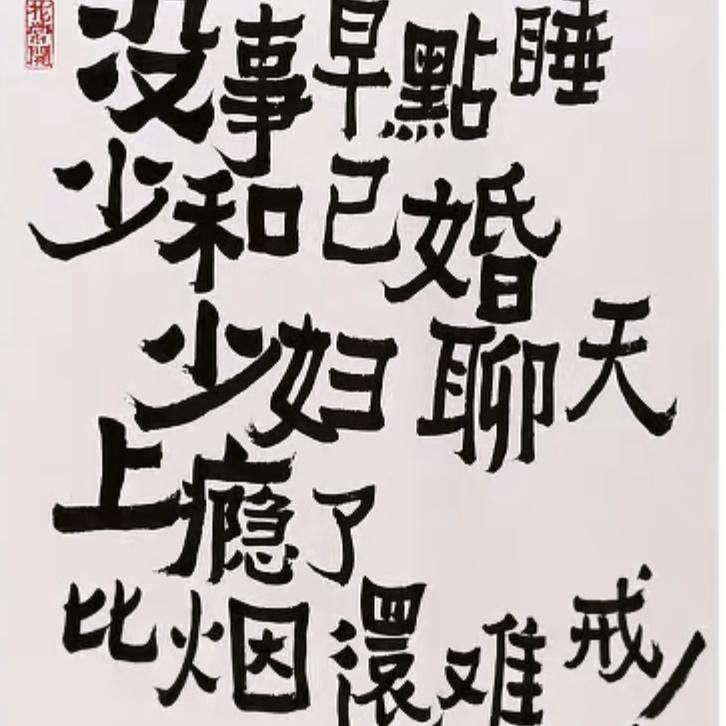 没事早點睡
少和已婚
少妇聊天
上瘾了
比烟還难戒